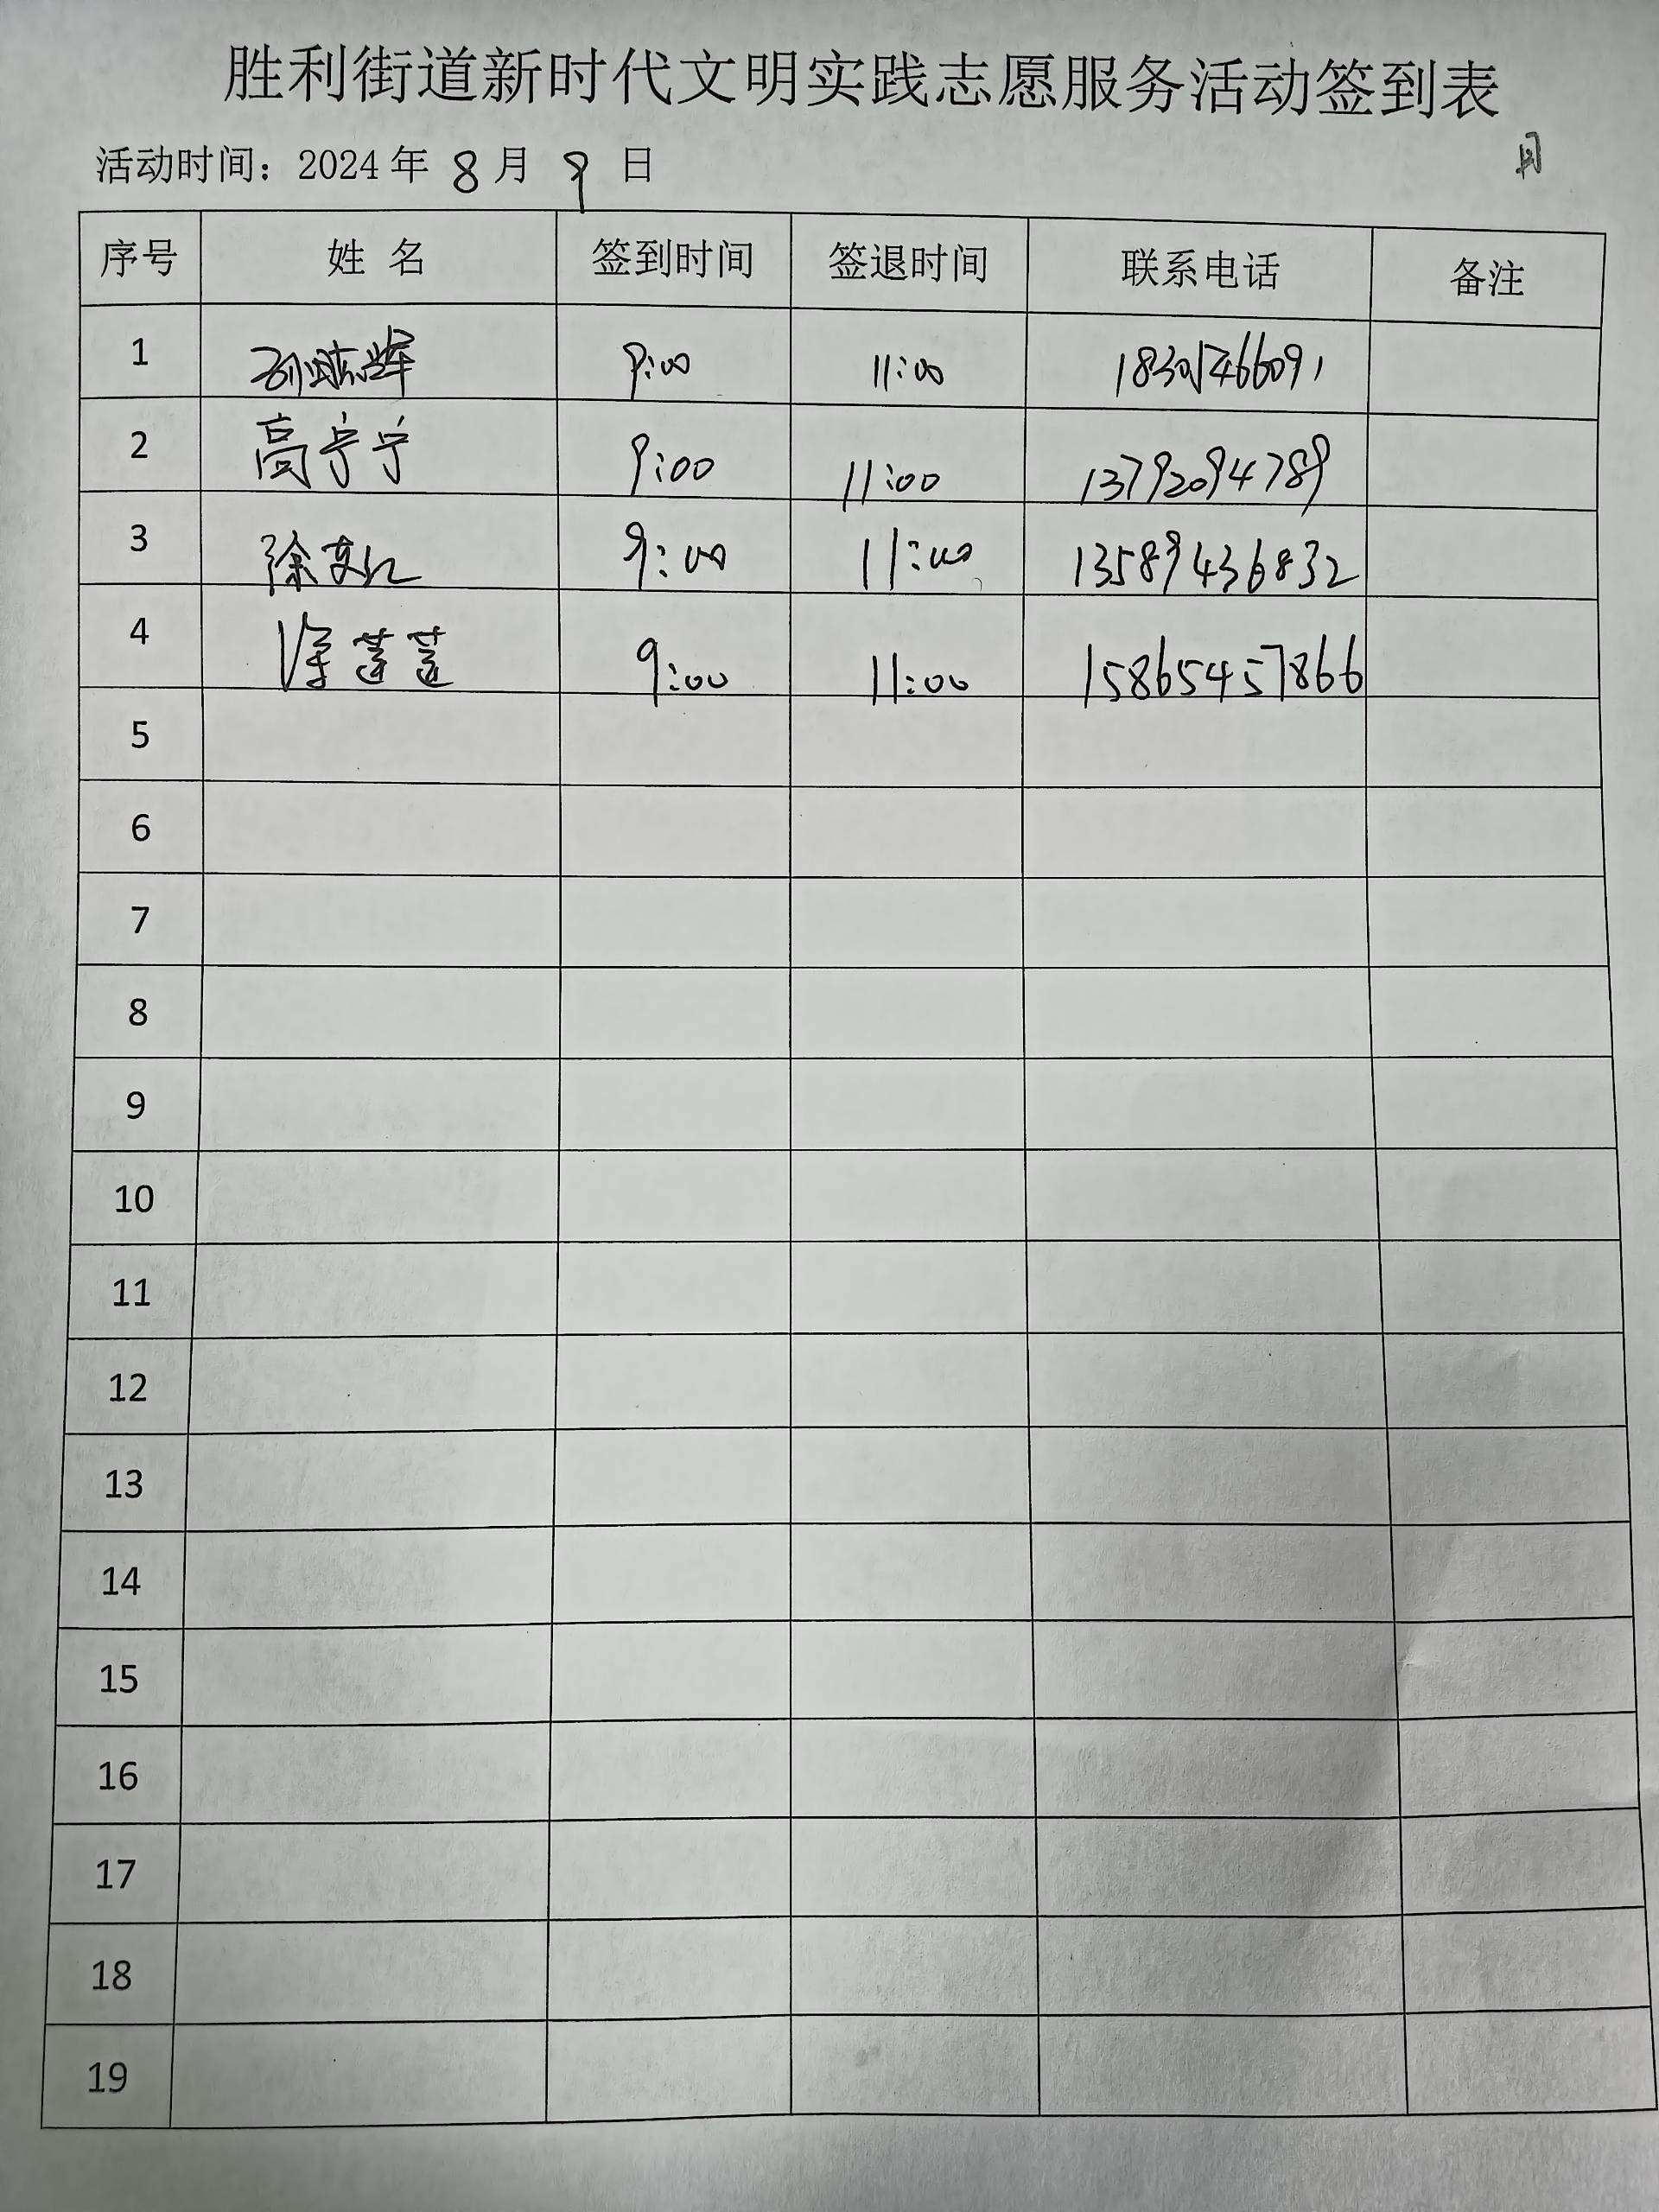 胜利街道新时代文明实践志愿服务活动签到表
活动时间：2024 年 8 月 9 日
序号 姓 名 签到时间 签退时间 联系电话 备注
1 9:00 11:00
2 高宁宁 9:00 11:00 13792094789
3 徐 9:00 11:00 13589436832
4 徐莲莲 9:00 11:00 15865457866
5
6
7
8
9
10
11
12
13
14
15
16
17
18
19